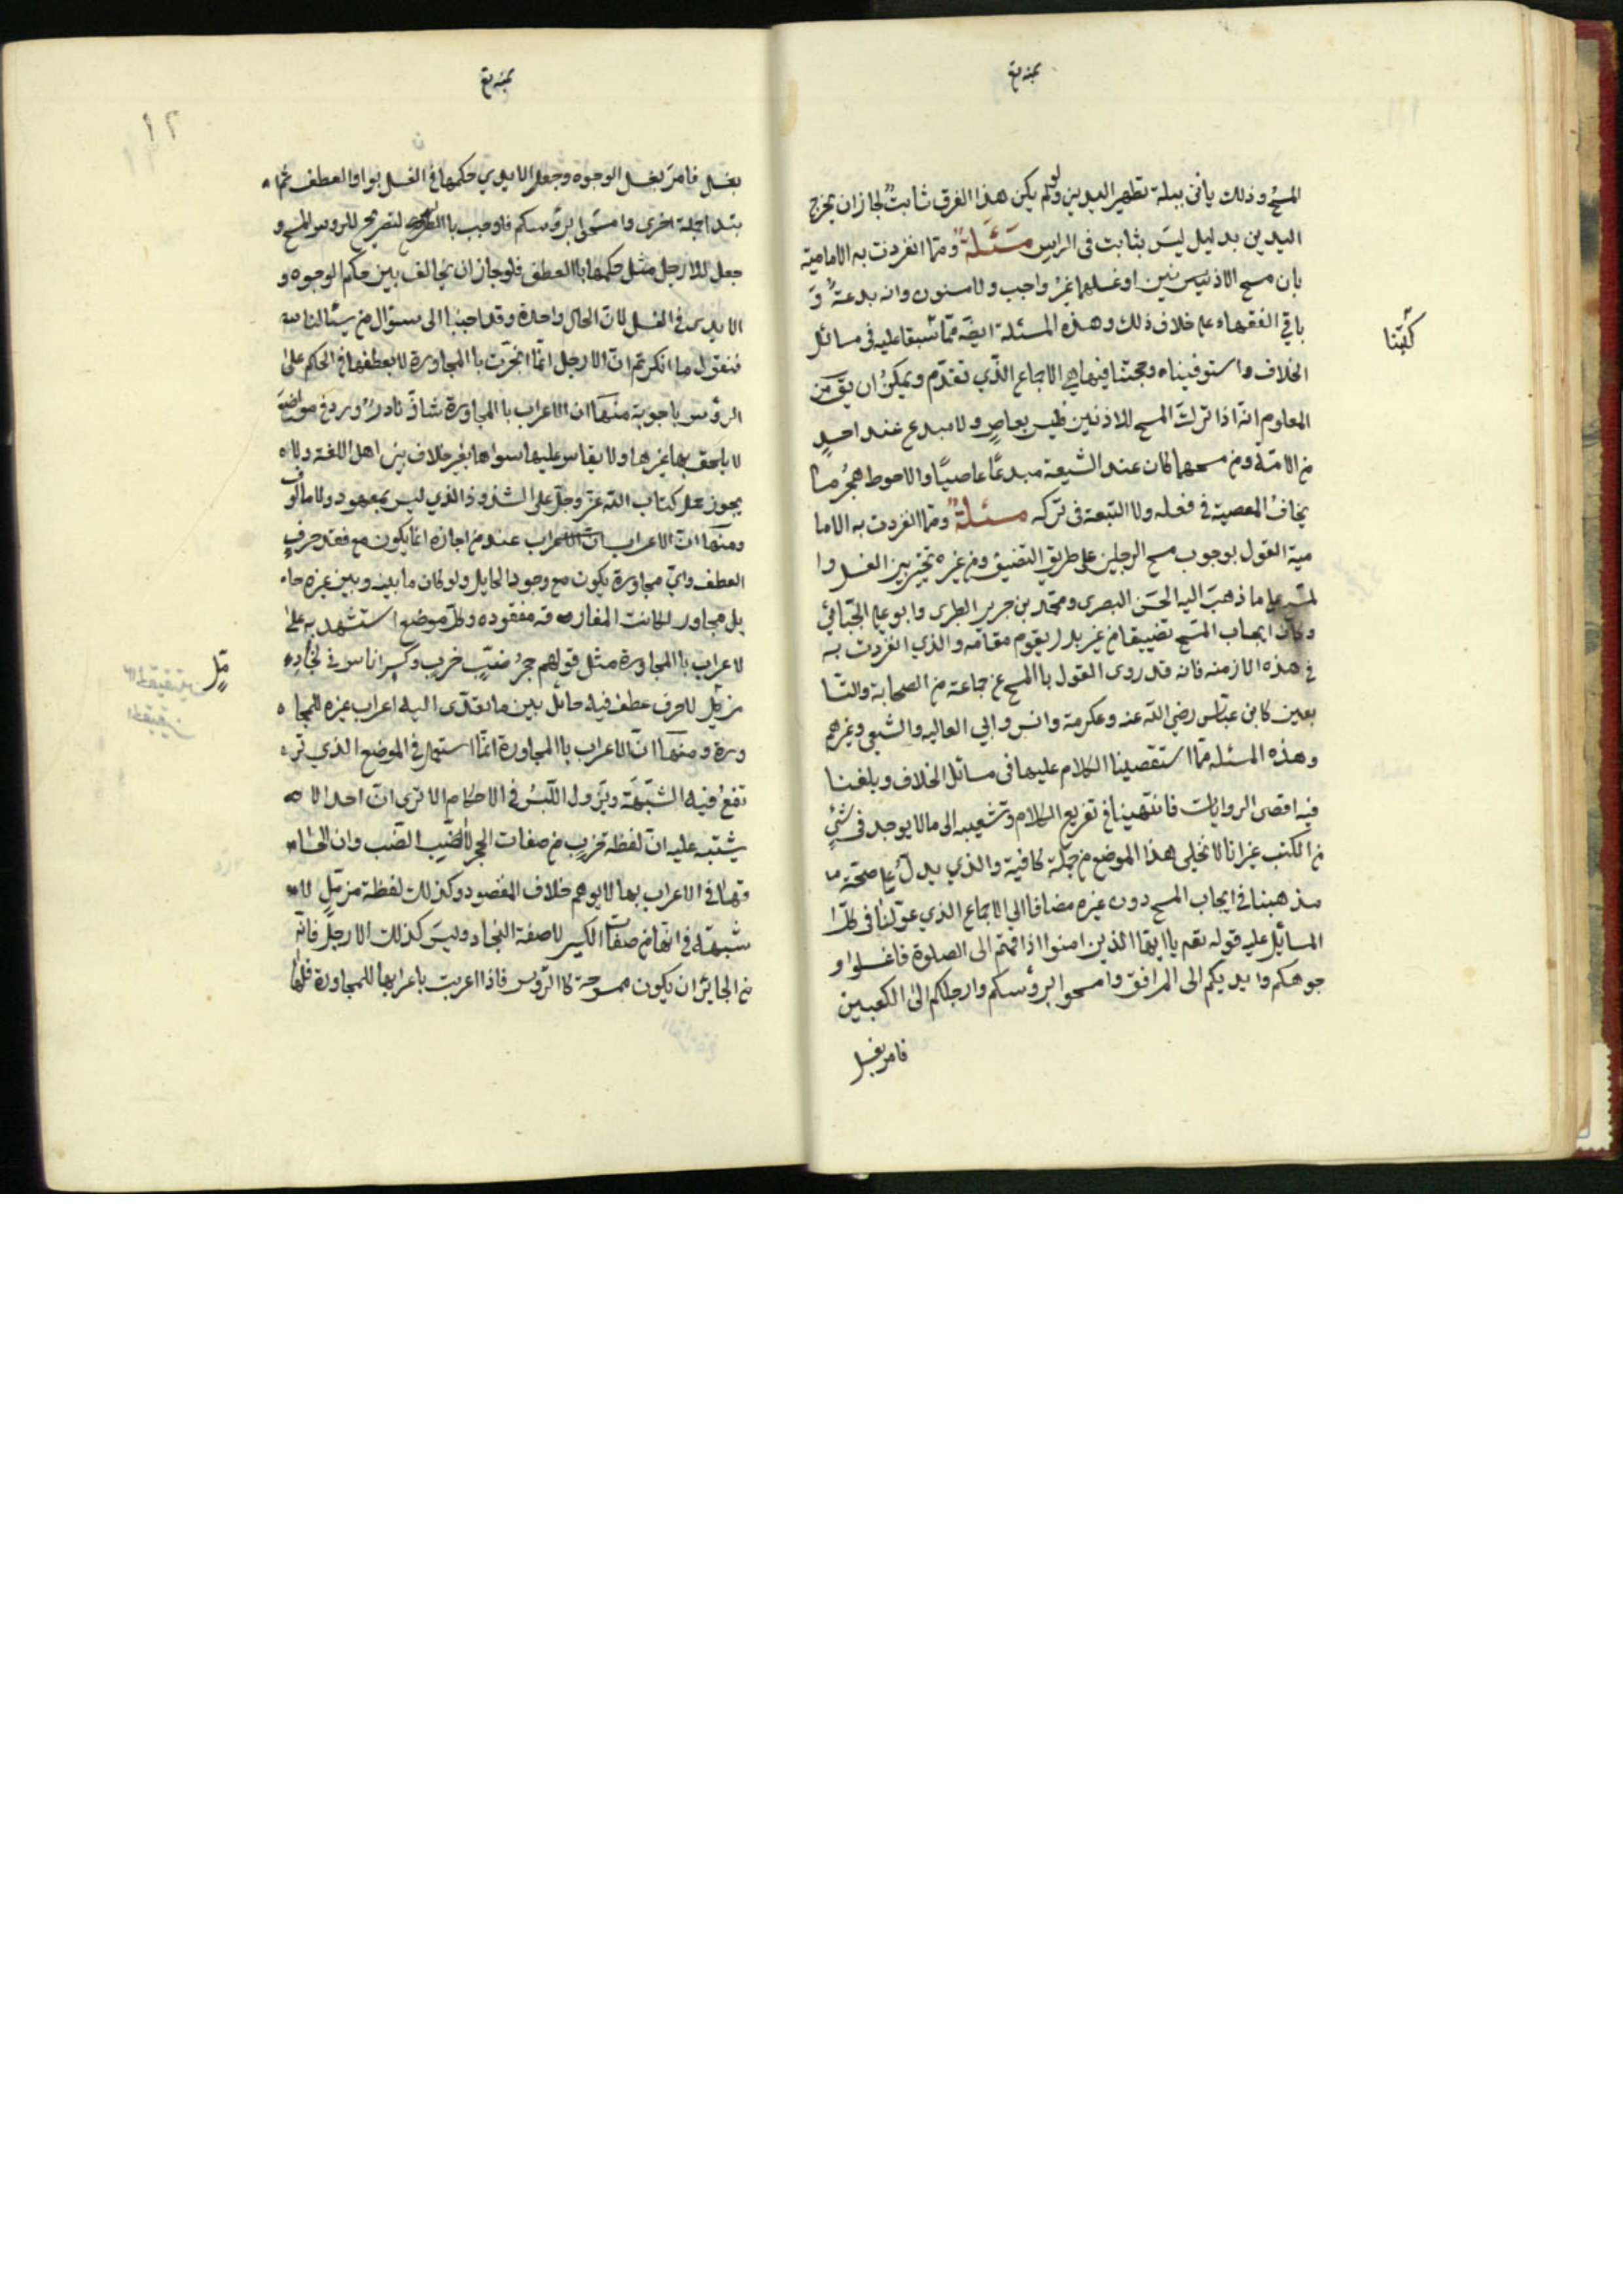 المسح وذلك يأتي ببلة تطهير اليدين ولو لم يكن هذا الفرق ثابت لجاز ان يخرج
اليدين بدليل ليس بثابت في الراس مسئلة ومما انفردت به الامامية
بان مسح الاذنين او غسلهما غير واجب ولا مسنون وانه بدعة و
باقي الفقهاء على خلاف ذلك وهذه المسئلة ايضة مما سبقا عليه في مسائل
الخلاف واستوفيناه وحجتنا فيها هي الاجماع الذي تقدم ويمكن ان يق من
المعلوم انه اذا ترك المسح للاذنين فليس بعاص ولا مبدع عند احد
من الامة ومن مسحهما كان عند الشيعة مبدعا عاصيا والاحوط هجر ما
يخاف المعصية في فعله ولا التبعة في تركه مسئلة ومما انفردت به الاما
مية القول بوجوب مسح الرجلين على طريق التضيق ومن غيره تخير بين الغسل وا
لمسح على ما ذهب اليه الحسن البصري ومحمد بن جرير الطبري وابو علي الجبائي
وكان ايجاب المسح تضييقا من غير بدل يقوم مقامه والذي انفردت به
في هذه الازمنه فانه قد روى القول باالمسح عن جماعة من الصحابة والتا
بعين كابن عباس رضي الله عنه وعكرمة وانس وابي العاليه والشعبي وغيرهم
وهذه المسئلة مما استقصينا الكلام عليها في مسائل الخلاف وبلغنا
فيه اقصى الروايات فانتهينا في تفريع الكلام وتشعيبه الى ما لا يوجد في شئ
من الكتب غير انا لا نخلي هذا الموضع من جملة كافية والذي يدل على صحة ما
مذهبنا في ايجاب المسح دون غيره مضافا الي الاجماع الذي عولنا في كل
المسائل عليه قوله تعم يا ايها الذين امنوا اذا قمتم الى الصلوة فاغسلوا و
جوهكم وايديكم الى المرافق وامسحوا برؤسكم وارجلكم الى الكعبين
فامر بغسل
كتبنا
بغسل فامر بغسل الوجوه وجعل الايدي حكمها في الغسل بواو العطف ثم ا
بتدا جملة اخرى وامسحوا برؤسكم فاوجب باالتصريح للرؤس المسح و
جعل للارجل مثل حكمها باالعطف فلو جاز ان يخالف بين حكم الوجوه و
الايدي في الغسل لان الحال واحدة وقد اجبنا الى سؤال من يسئالنا
فنقول ما انكرتم ان الارجل انما انجرت باالمجاورة لا بعطفها في الحكم على
الرؤس باجوبة منها ان الاعراب باالمجاورة شاذ نادر ورد في مواضع
لا يلحق بها غيرها ولا يقاس عليها سواها بغير خلاف بين اهل اللغة ولا
يجوز حمل كتاب الله عز وجل على الشذوذ الذي ليس بمعهود ولا مالوف
ومنها ان الاعراب عند من اجازه انما يكون مع فقد حرف
العطف واي مجاورة يكون مع وجود الحايل ولو كان ما بينه وبين غيره حا
يل مجاور لكانت المفارقه مفقوده وكل موضع استشهد به على
لاعراب باالمجاورة مثل قولهم جحر ضب خرب وكبير اناس في بجاد
مزمل لا حرف عطف فيه حائل بين ما تعدى اليه اعراب غيره للمجا
ورة ومنها ان الاعراب باالمجاورة انما استعمل في الموضع الذي تر
تفع فيه الشبهة ويزول اللبس في الاحكام الا ترى ان احدا لا
يشتبه عليه ان لفظة خرب من صفات الجحر لا الضب وان الحا
قها في الاعراب بها لا يوهم خلاف المقصود وكذلك لفظة مزمل لا
شبهة في انها من صفات الكبير لا صفة البجاد وليس كذلك الارجل فانه
من الجايز ان يكون ممسوحة كاالرؤس فاذا اعربت باعرابها للمجاورة فلها
مل